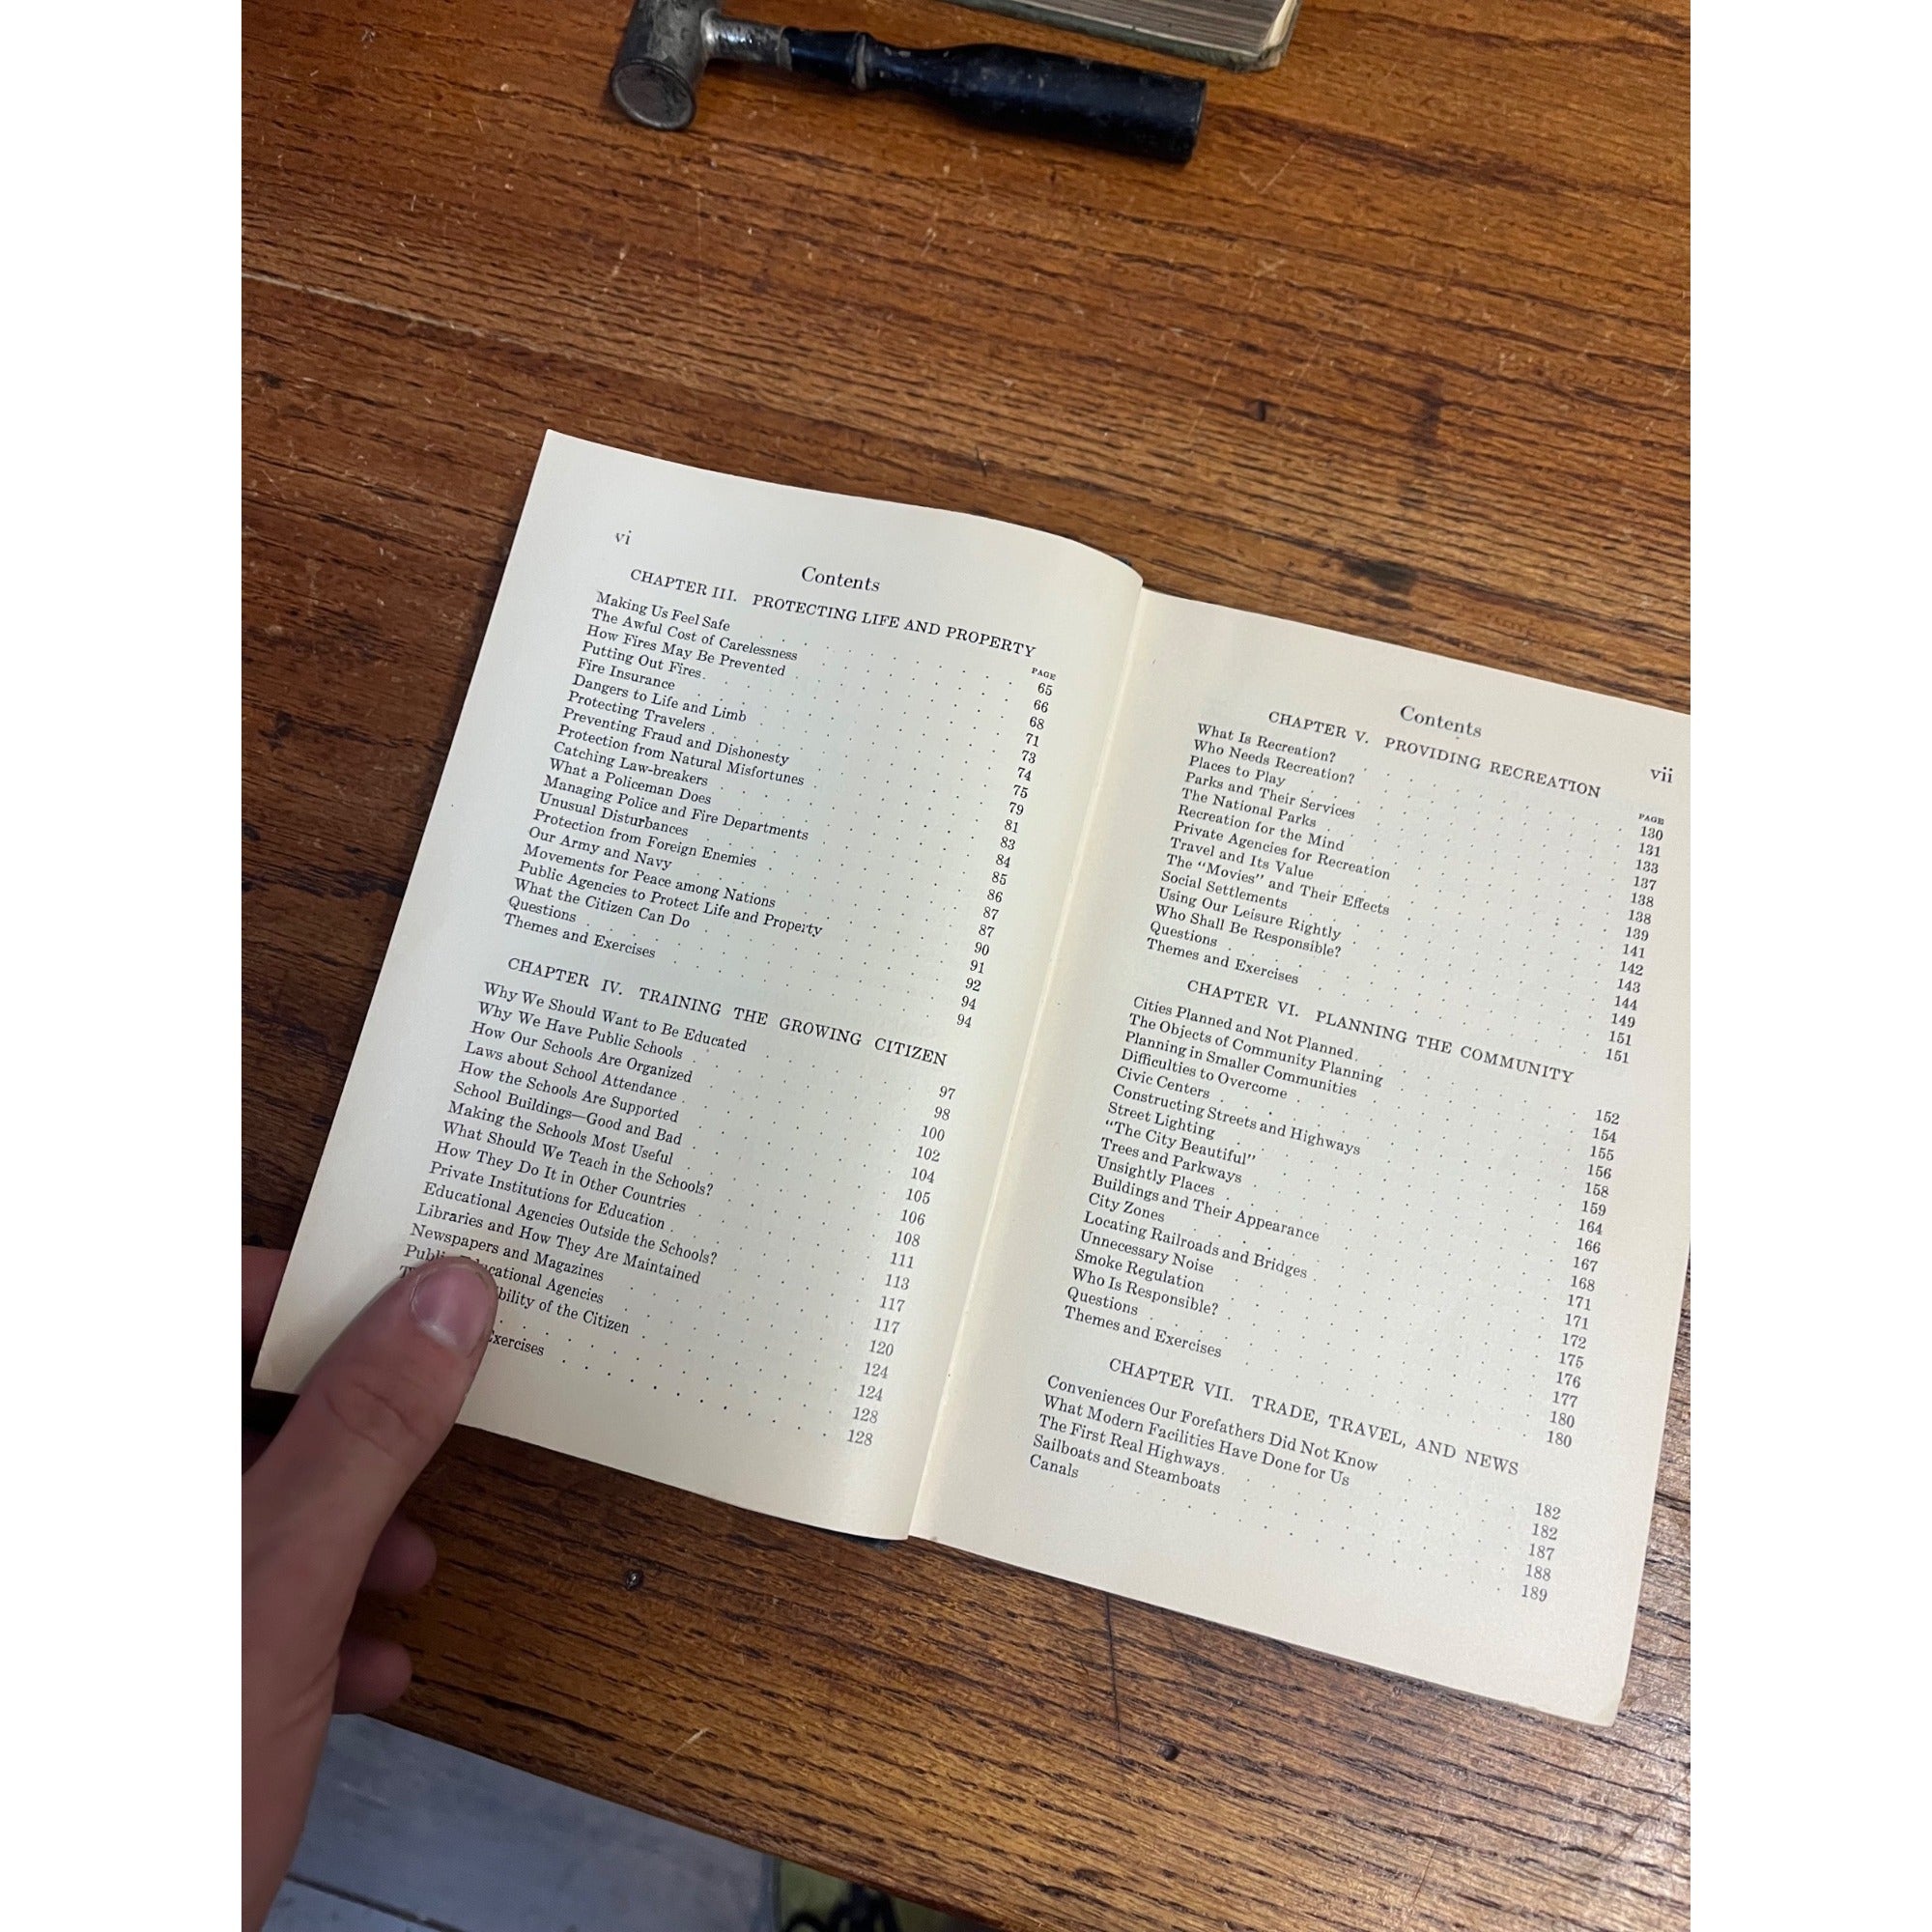 vi
Contents
CHAPTER III. PROTECTING LIFE AND PROPERTY
PAGE
Making Us Feel Safe 65
The Awful Cost of Carelessness 66
How Fires May Be Prevented 68
Putting Out Fires 71
Fire Insurance 73
Dangers to Life and Limb 74
Protecting Travelers 75
Preventing Fraud and Dishonesty 79
Protection from Natural Misfortunes 81
Catching Law-breakers 83
What a Policeman Does 84
Managing Police and Fire Departments 85
Unusual Disturbances 86
Protection from Foreign Enemies 87
Our Army and Navy 87
Movements for Peace among Nations 90
Public Agencies to Protect Life and Property 91
What the Citizen Can Do 92
Questions 94
Themes and Exercises 94
CHAPTER IV. TRAINING THE GROWING CITIZEN
Why We Should Want to Be Educated 97
Why We Have Public Schools 98
How Our Schools Are Organized 100
Laws about School Attendance 102
How the Schools Are Supported 104
School Buildings—Good and Bad 105
Making the Schools Most Useful 106
What Should We Teach in the Schools? 108
How They Do It in Other Countries 111
Private Institutions for Education 113
Educational Agencies Outside the Schools? 117
Libraries and How They Are Maintained 117
Newspapers and Magazines 120
Public Educational Agencies 124
of the Citizen 124
128
Exercises 128
Contents
vii
CHAPTER V. PROVIDING RECREATION
PAGE
What Is Recreation? 130
Who Needs Recreation? 131
Places to Play 133
Parks and Their Services 137
The National Parks 138
Recreation for the Mind 138
Private Agencies for Recreation 139
Travel and Its Value 141
The "Movies" and Their Effects 142
Social Settlements 143
Using Our Leisure Rightly 144
Who Shall Be Responsible? 149
Questions 151
Themes and Exercises 151
CHAPTER VI. PLANNING THE COMMUNITY
Cities Planned and Not Planned 152
The Objects of Community Planning 154
Planning in Smaller Communities 155
Difficulties to Overcome 156
Civic Centers 158
Constructing Streets and Highways 159
Street Lighting 164
"The City Beautiful" 166
Trees and Parkways 167
Unsightly Places 168
Buildings and Their Appearance 171
City Zones 171
Locating Railroads and Bridges 172
Unnecessary Noise 175
Smoke Regulation 176
Who Is Responsible? 177
Questions 180
Themes and Exercises 180
CHAPTER VII. TRADE, TRAVEL, AND NEWS
Conveniences Our Forefathers Did Not Know 182
What Modern Facilities Have Done for Us 182
The First Real Highways 187
Sailboats and Steamboats 188
Canals 189